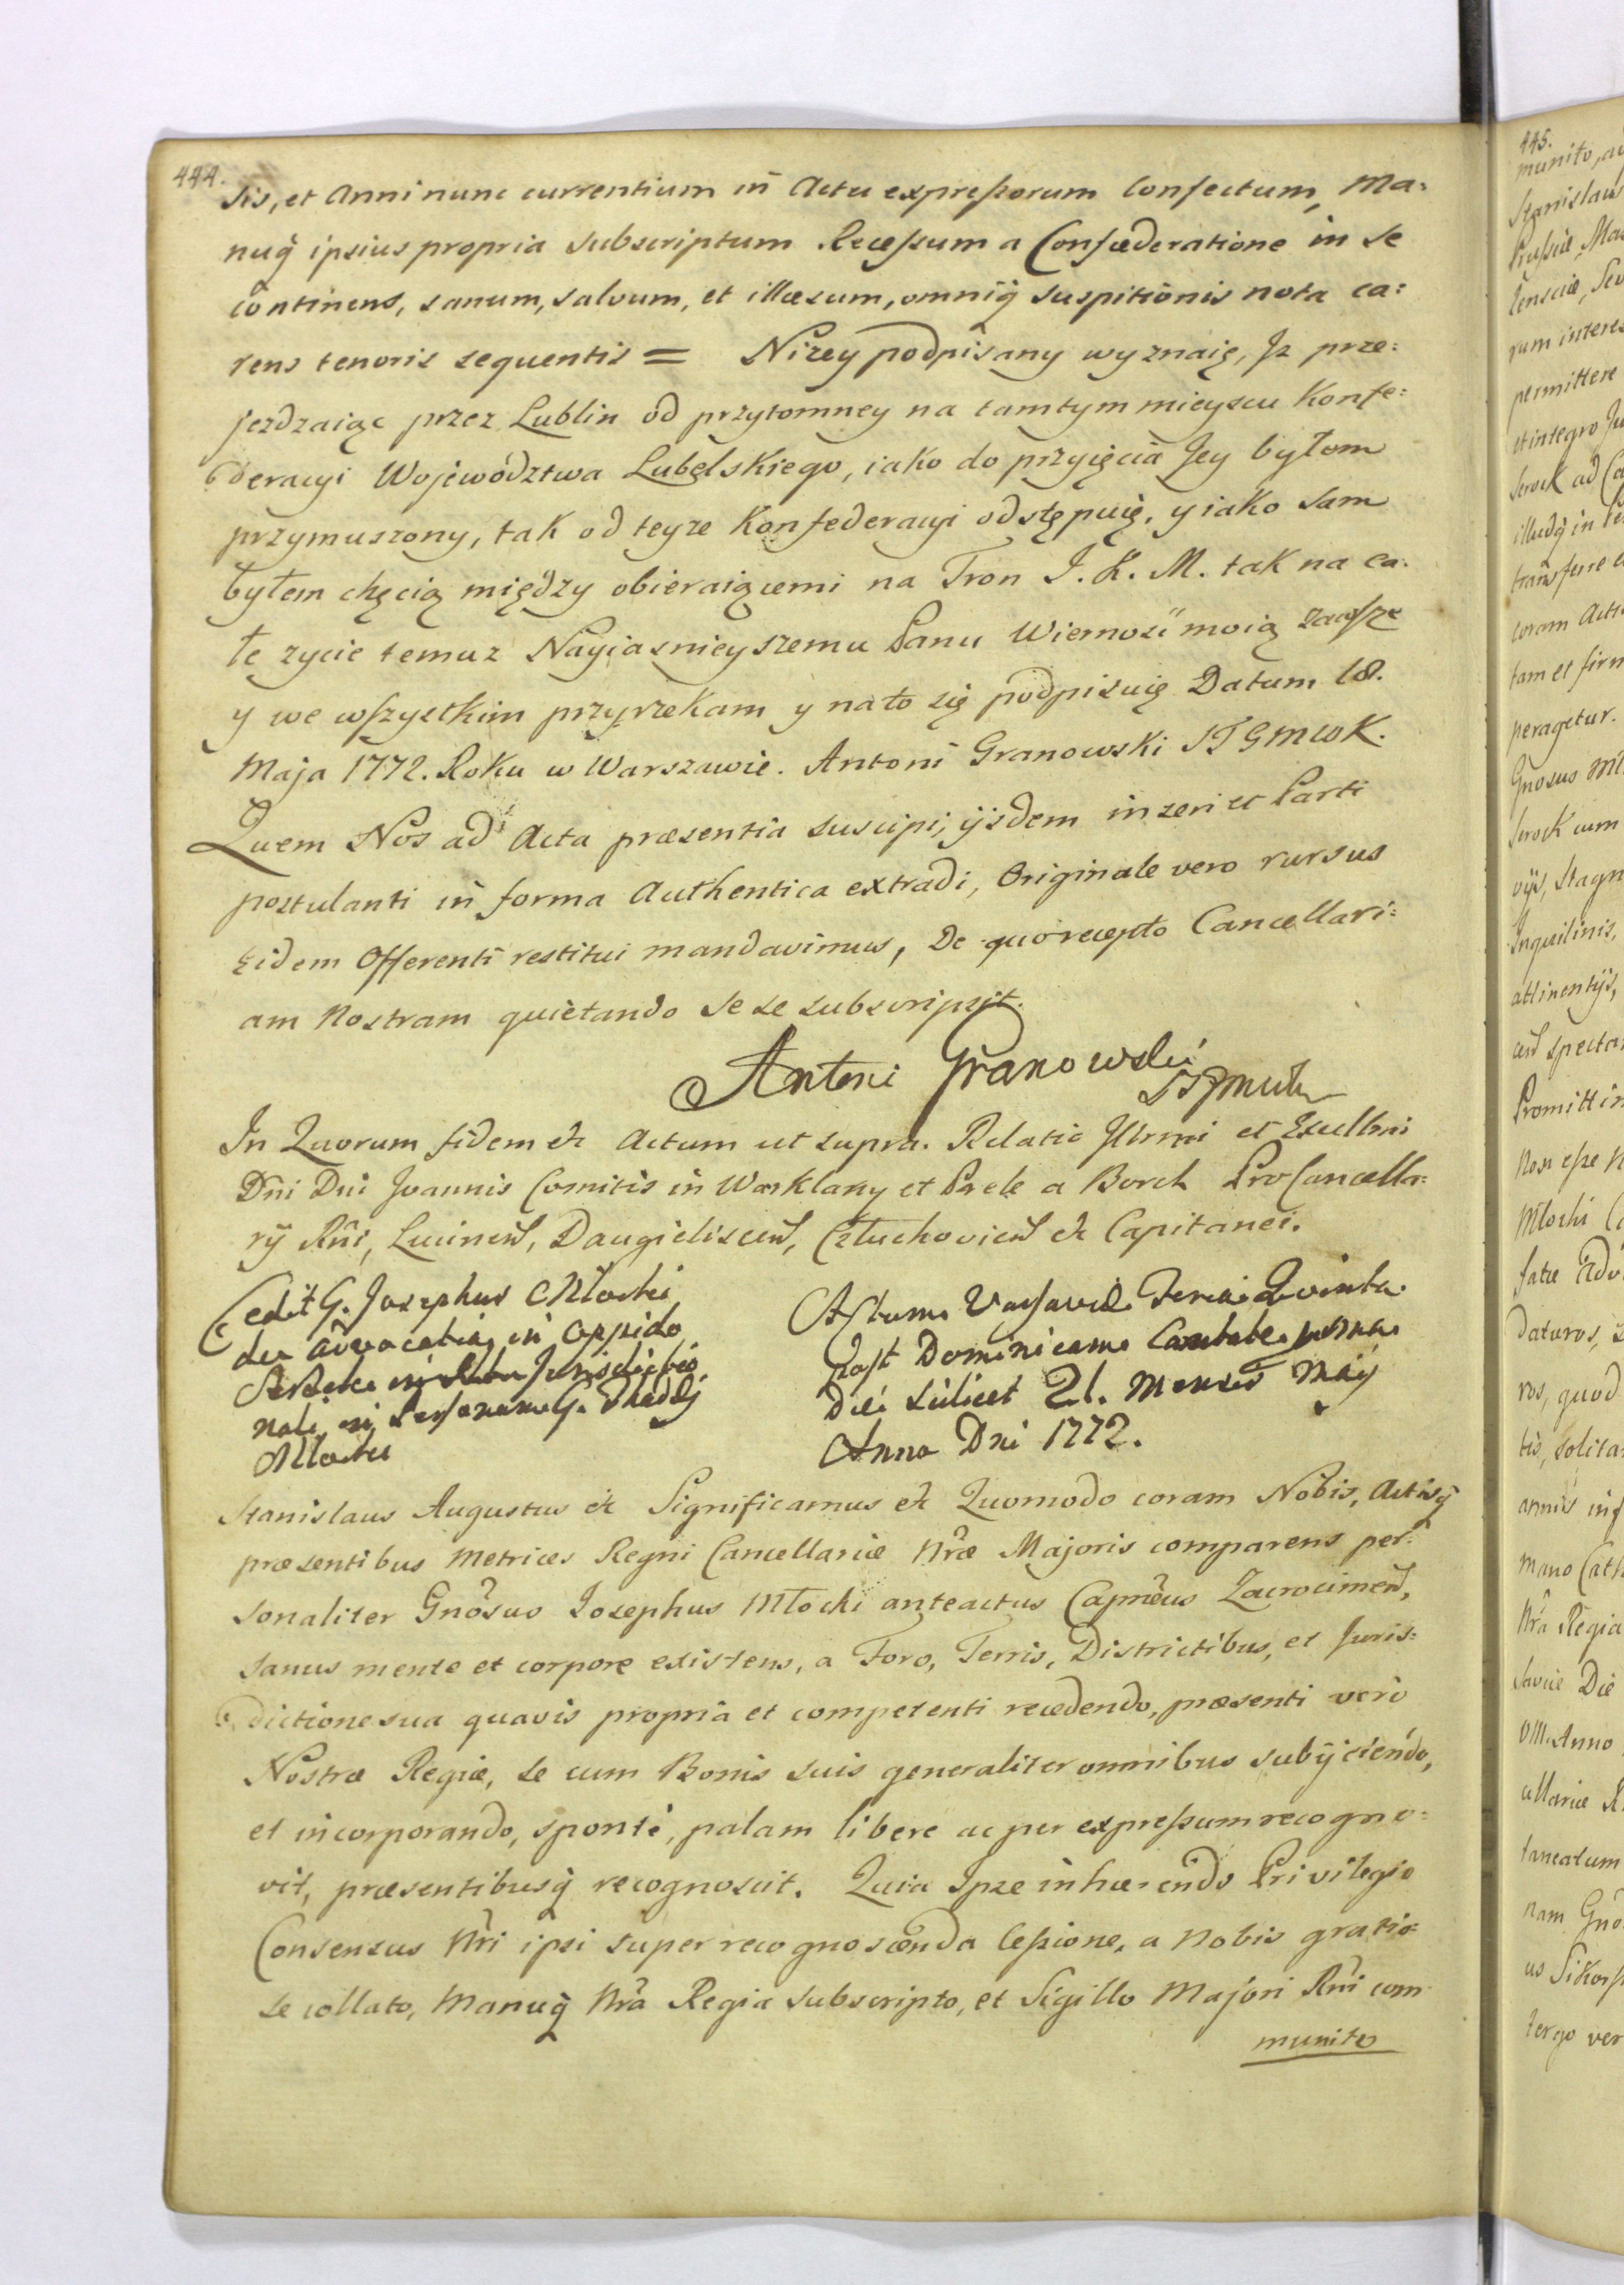 444.
sis, et Anni nunc currentium in Actu expreßorum Confectum, Ma:
nuq̃ ipsius propria subscriptum Receßum a Confæderatione in se
continens, sanum, salvum, et illæsum, omniq̃ suspitionis nota ca:
rens tenoris sequentis = Nizey podpisany wyznaię, Jz prze:
jezdzaiąc przez Lublin od przytomney na tamtym mieyscu Konfe:
deracyi Województwa Lubęlskiego, iako do przyięcia Jey byłom
przymuszony, tak od teyze Konfederacyi odstępuię, y iako sam
byłem chęcią między obieraiącemi na Tron J. K. M. tak na ca:
łe zycie temuz Nayiasnieyszemu Panu Wiernosć moią zawsze
y we wszystkim przyrzekam y na to się podpisuię Datum 18.
Maja 1772. Roku w Warszawie. Antoni Granowski STGMWK.
Quem Nos ad Acta præsentia suscipi, ijsdem inseri et Parti
postulanti in forma Authentica extradi, Originale vero rursus
Eidem Offerenti restitui mandavimus, De quo recepto Cancellari:
am Nostram quietando se se subscripsit.
Antoni Granowski
In Quorum fidem &c Actum ut supra. Relatio Jllrmi et Excellmi
Dñi Dñi Joannis Comitis in Warklany et Prele a Borch ProCancella:
rij Rñi, Lucinen, Daugieliscen, Człuchovien &c Capitanei.
Cedit G. Josephus Młocki
de advocatia in oppido
Serock
nali in Personam G. Thadej
Młocki
Actum Varsaviæ Feria Quinta
post Dominicam Cantate
die scilicet 21. Mensis Maij
Anno Dni 1772.
Stanislaus Augustus &c Significamus &c Quomodo coram Nobis, Actisq̃
præsentibus Metrices Regni Cancellariæ Nræ Majoris comparens per:
sonaliter Gnõsus Josephus Młocki anteactus Capnẽus Zacrocimen,
sanus mente et corpore existens, a Foro, Terris, Districtibus, et Juris:
dictione sua quavis propria et competenti recedendo, præsenti vero
Nostræ Regiæ, se cum Bonis suis generaliter omnibus subijciendo,
et incorporando, sponte, palam libere ac per expreßum recogno:
vit, præsentibusq̃ recognoscit. Quia Ipse inhærendo Privilegio
Consensus Nri ipsi super recognoscenda Ceßione, a Nobis gratio:
se collato, Manuq̃ Nrã Regia subscripto, et Sigillo Majori Rñi com
munito
445.
munito, ac
Stanislaus
Prussiæ, Ma
rum interes
permittere
et integro Ju
Serock ad
illudq̃ in
transferre
coram Actis
tam et firm
peragetur.
Gnosus
Serock cum
vijs, stagn
Inquilinis,
attinentijs,
spectan
Promittin
Non eße
Młocki
Daturos,
ros, quod
tis, solita
annis inf
mano Cath
Nrã Regia
saviæ Die
VIII. Anno
cellariæ
nam
us Sikorsk
tergo ver